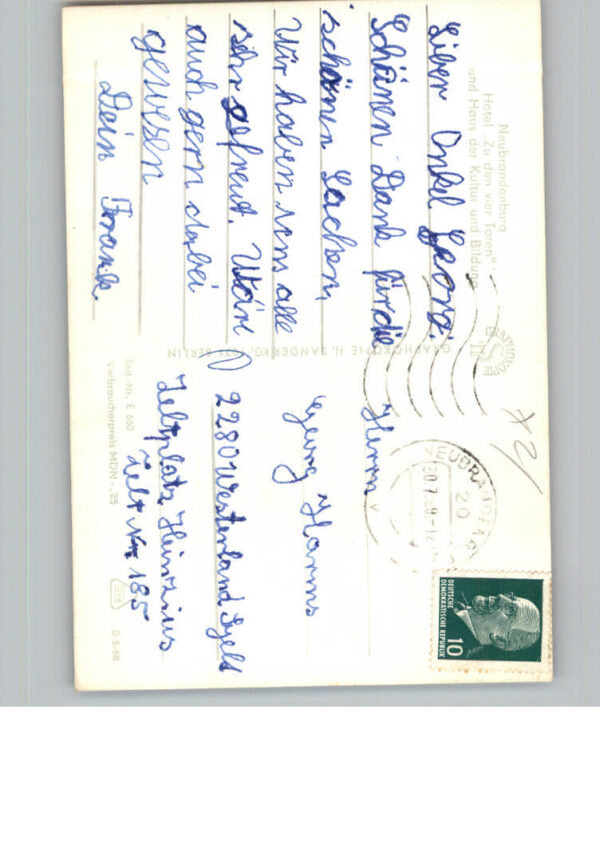 Neubrandenburg
Hotel „Zu den vier Toren"
und Haus der Kultur und Bildung
Liber Onkel Georg.
Schönen Dank für die
schönen Sachen,
Wir haben uns alle
sehr gefreut. Wäre
auch gern dabei
gewesen
Dein Frank.
GRAPHOKOPIE H. SANDER KG, 1071 BERLIN
GRAPHOKOPIE
H S
x 2/
NEUBRANDENBURG
20
20.7.
DEUTSCHE
DEMOKRATISCHE REPUBLIK
10
Herrn
Georg Harms
2280 Westerland Sylt
Zeltplatz Heinzius
Zelt Nr. 185
Best.-Nr. E 660
Verbraucherpreis MDN -,25